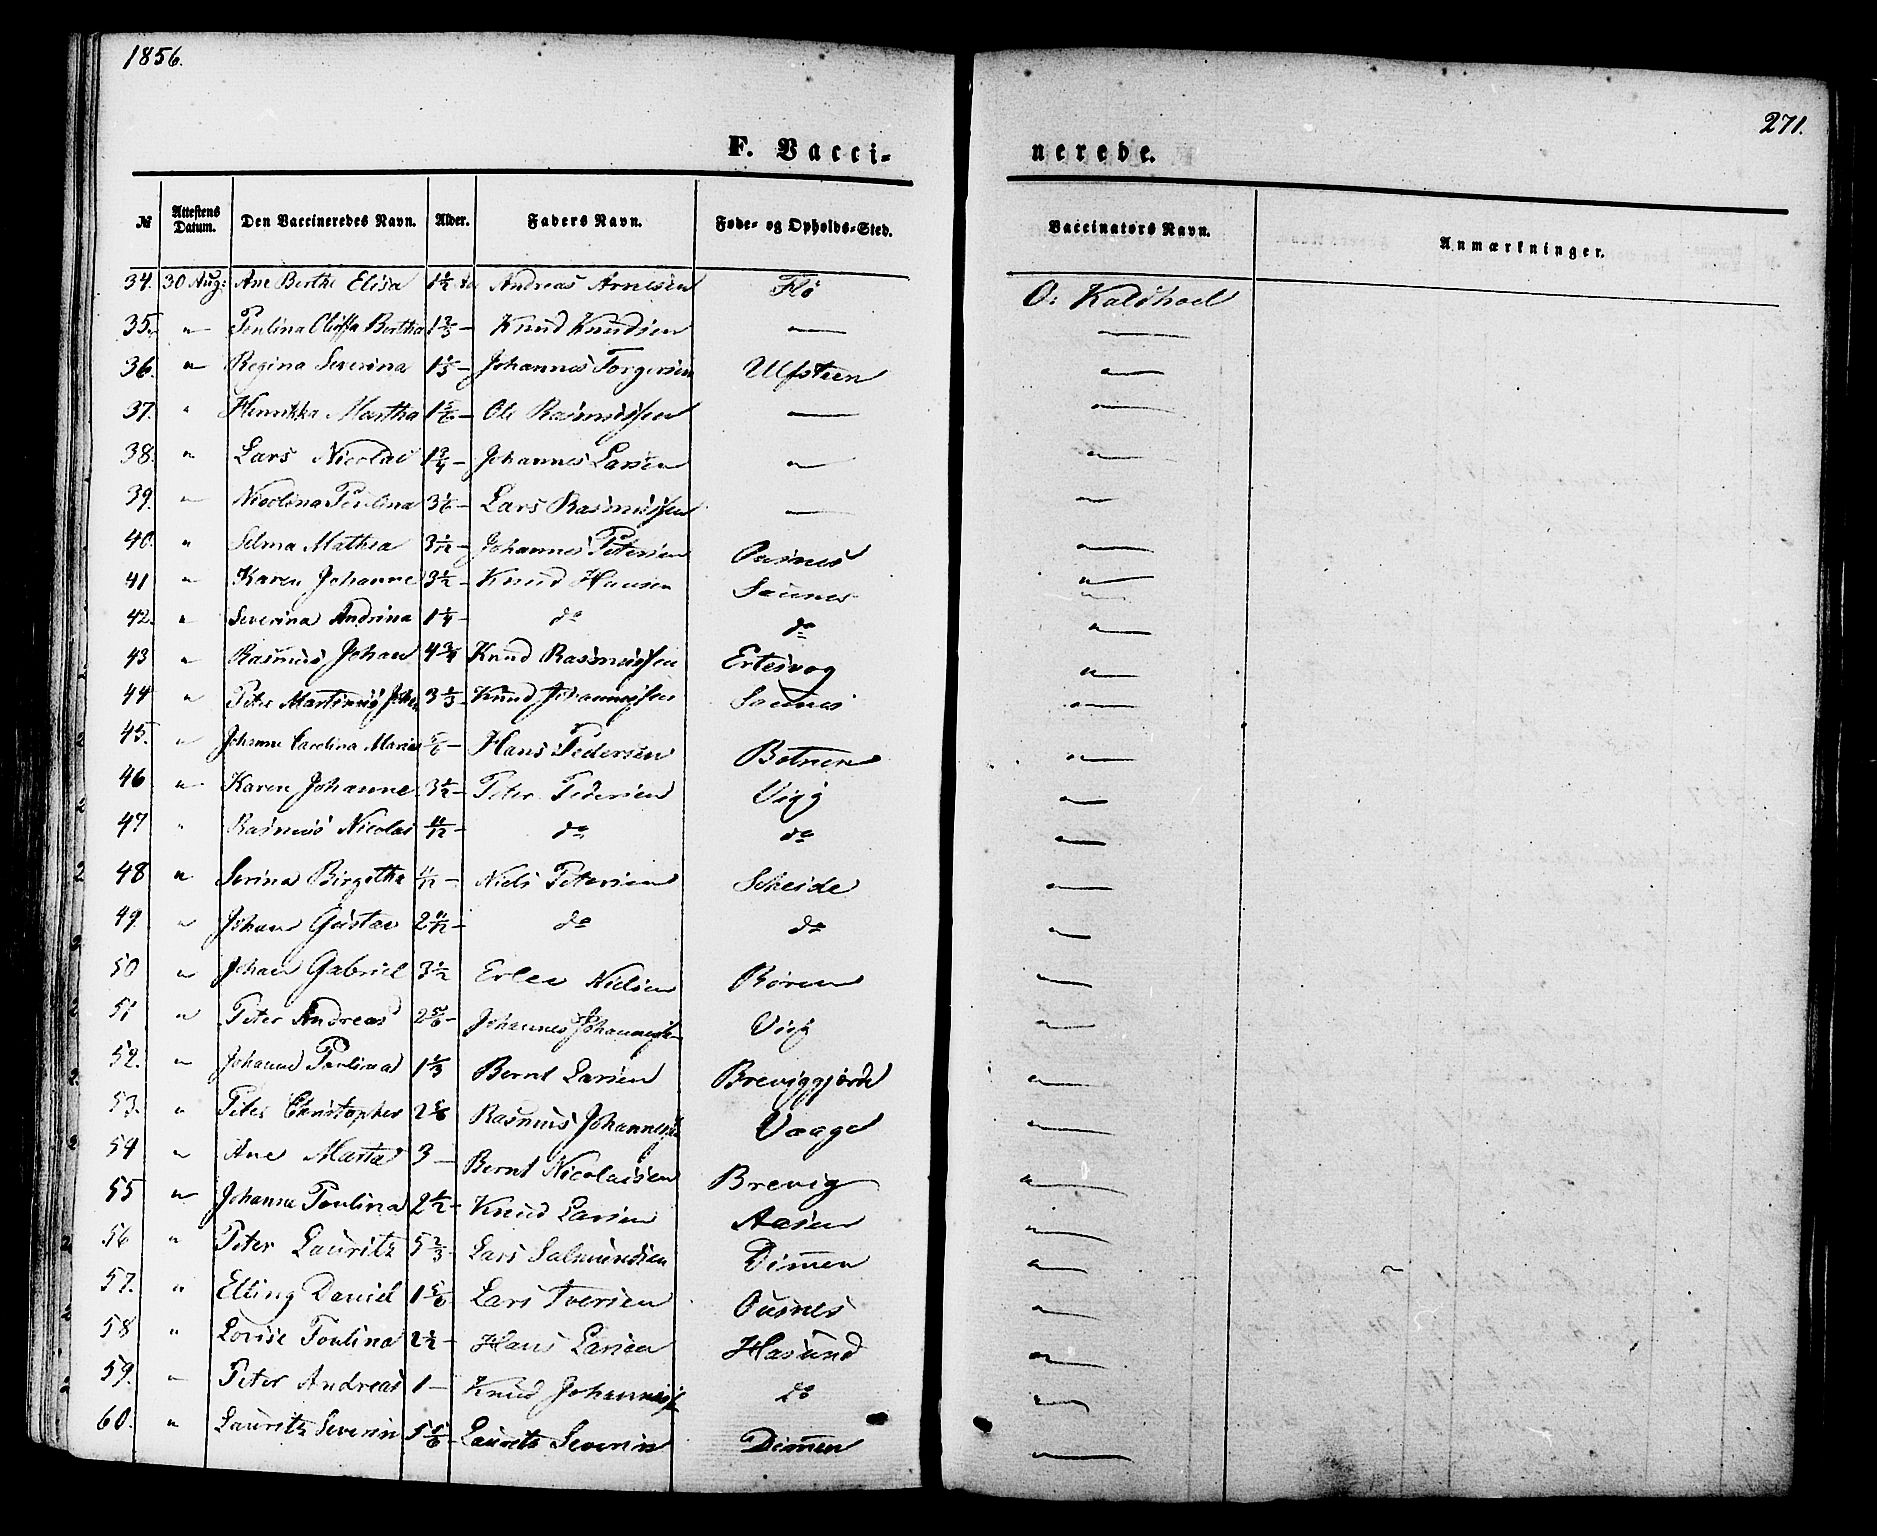 1856.
271.
F. Vacci-
nerede.
№ Attestens Datum. Den Vaccineredes Navn. Alder. Faders Navn. Føde- og Opholds-Sted. Vaccinators Navn. Anmærkninger.
34. 30 Aug: Ane Berthe Elisa 1½ Andreas Arnesen Flø O: Kaldhoel
35. " Poulina Bertha 1⅔ - Knud Knudsen — —
36. " Regina Severina 1⅓ - Johannes Torgersen Ulfsteen "
37. " Henrikka Martha 1⅚ - Ole Rasmussen — "
38. " Lars Nicolai 1¾ - Johannes Larsen " "
39. " Nicolina Poulina 3⅙ - Lars Rasmussen — "
40. " Selma Mathea - Johannes Petersen "
41 " Karen Johanne 3½ - Knud Hansen Saunes "
42. " Severina Andrina 1¼ - do do "
43 " Rasmus Johan 4¾ Knud Rasmussen Ertesvog "
44 " Peter Martinus 3⅓ - Knud Johannessen Saunes "
45. " Johanne Carolina Marie ⅚ - Hans Pedersen Botnen "
46 " Karen Johanne 3½ - Peter Pedersen Vigj "
47 " Rasmus Nicolai - do do "
48 " Serina Birgithe 11/12 - Niels Petersen Scheide "
49. " Johan Gustav 2 11/12 - do do "
50 " Johan Gabriel 3½ - Nielsen "
51 " Peter Andreas 2⅚ - Johannes Johannessen Vigj "
52. " Johanne Poulina 1⅓ Bernt Larsen "
53. " Peter Christopher 2⅚ Rasmus Johannessen Vaage "
54 " Ane Marta 3 - Bernt Nicolaisen Brevig "
55 " Johanne Poulina 2½ - Knud Larsen Aasen "
56 " Peter Lauritz 5⅔ - Lars Salmundsen Dimen "
57. " Elling Daniel 1⅚ Lars Iversen Ousnes "
58 " Lovise Poulina 2½ - Hans Larsen Hasund "
59. " Peter Andreas 1 - Knud Johanness do "
60. " Lauritz Severin 5⅚ - Laurits Severin Dimen "